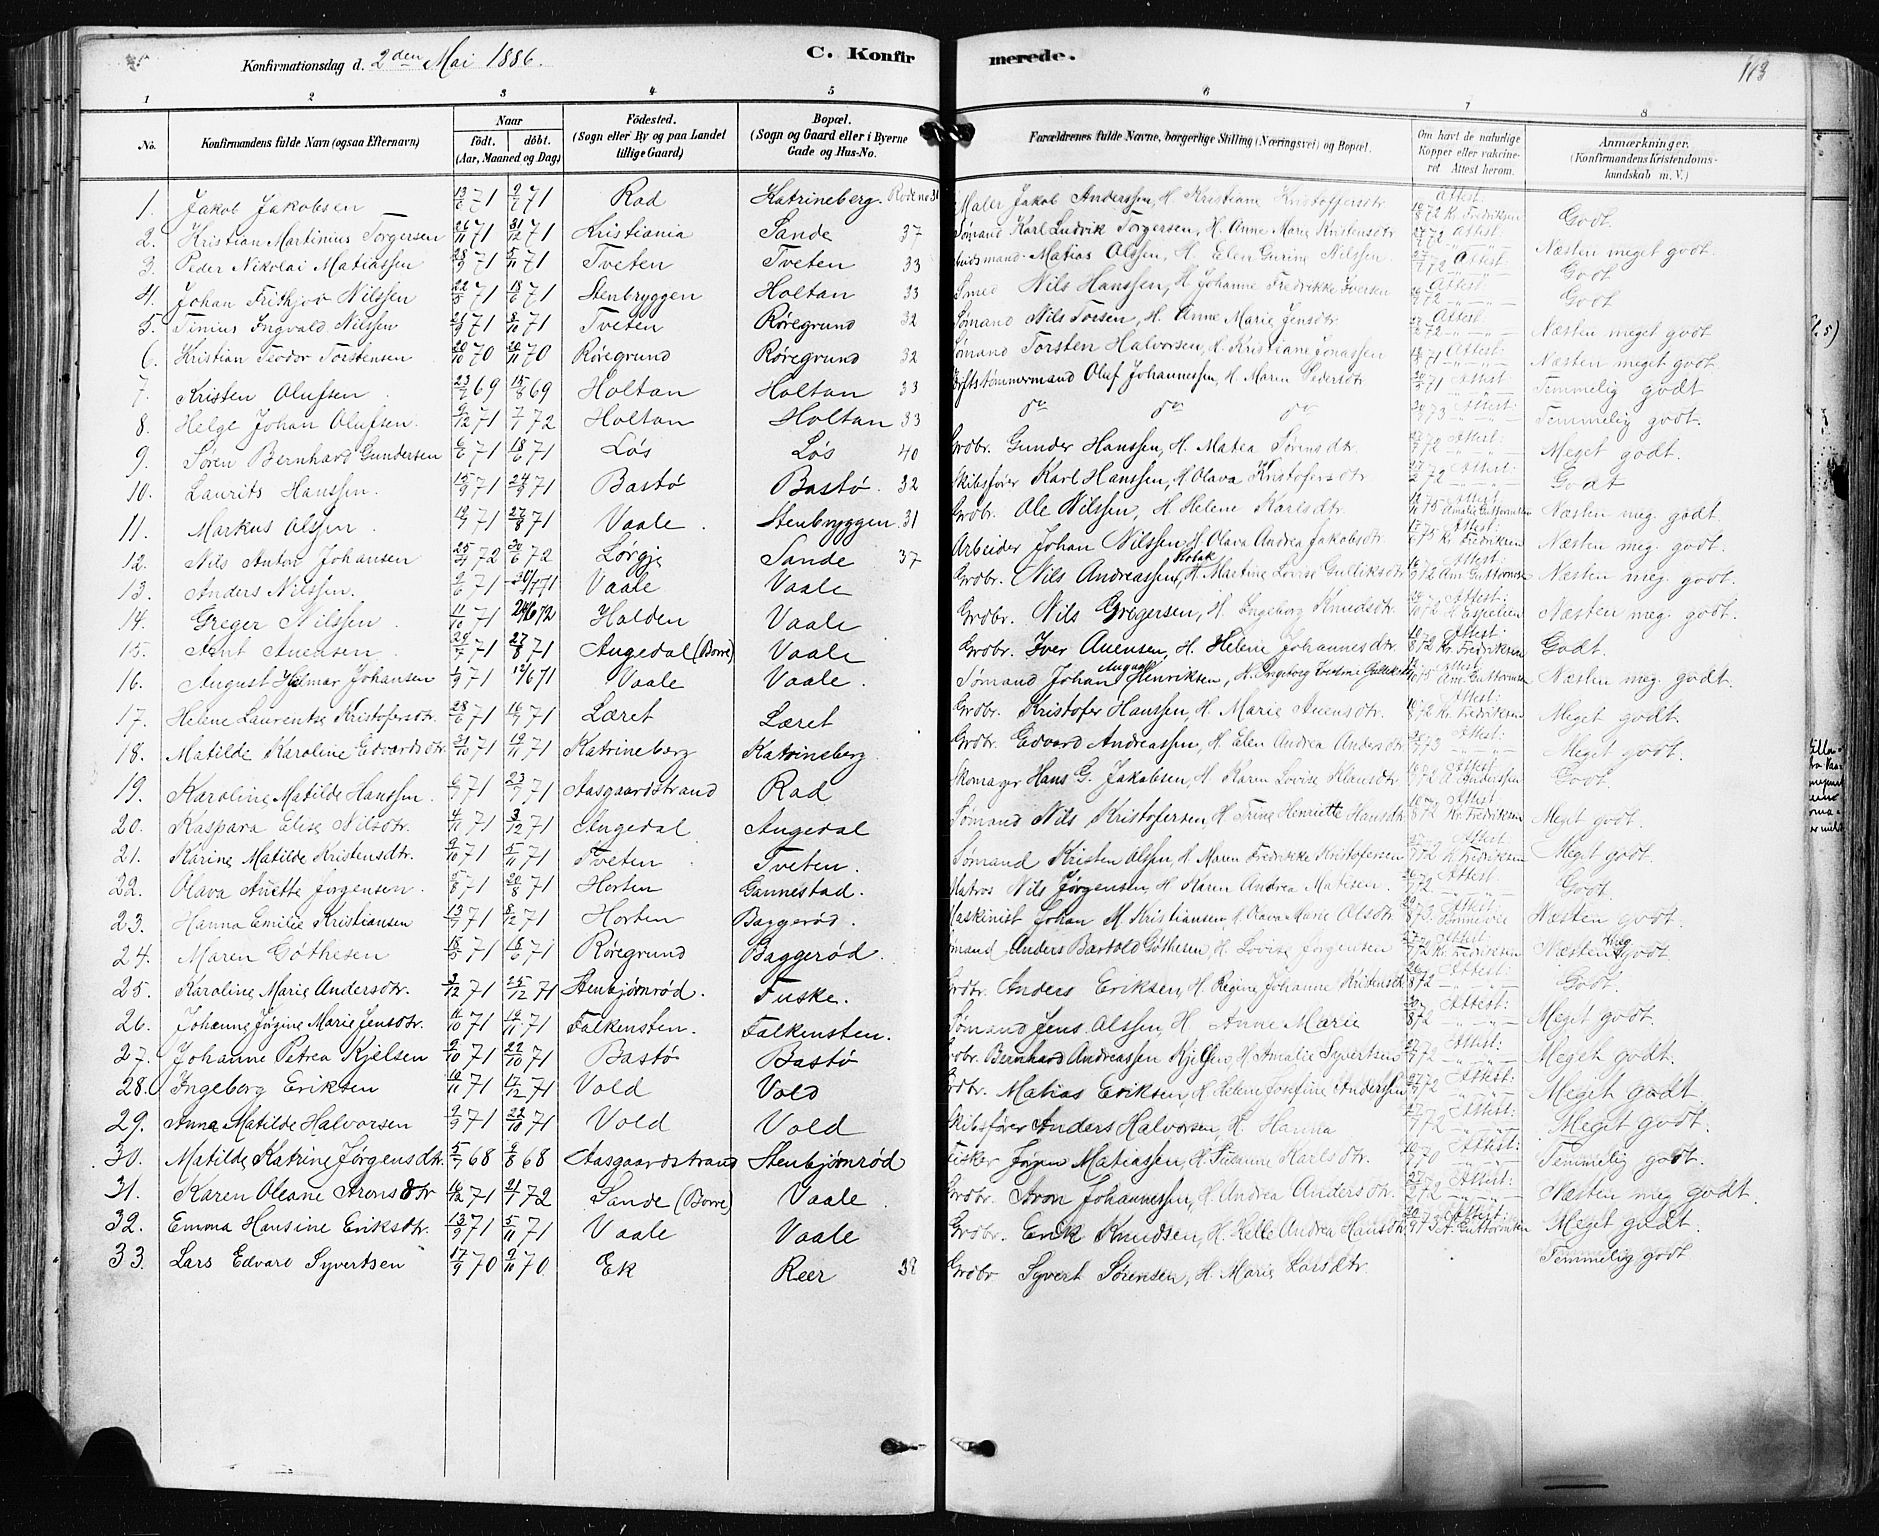 Konfirmationsdag d. 2den Mai 1886. C. Konfirmerede. 113
1 2 3 4 5 6 7 8
No. Konfirmandens fulde Navn (ogsaa Efternavn) Naar født. døbt. (Aar, Maaned og Dag) Fødested. (Sogn eller By og paa Landet tillige Gaard) Bopæl. (Sogn og Gaard eller i Byerne Gade og Hus-No. Forældrenes fulde Navne, borgerlige Stilling (Næringsvei) og Bopæl. Om havt de naturlige Kopper eller vakcineret Attest herom. Anmærkninger. (Konfirmandens Kristendomskundskab m. V.)
1. Jakob Jakobsen 13/6 71 9/6 71 Rad Katrineberg. Rode no 31 Maler Jakob Anderssen, H. Kristiane Kristoffersdtr Attest Kr. Fredriksen Godt
2. Kristian Martinius Torgersen 26/11 71 31/12 71 Kristiania Sande 37 Sømand Karl Ludvik Torgersen, H. Anne Marie Kristensdtr Attest Næsten meget godt.
3. Peder Nikolai Matiassen 28/9 71 5/11 71 Tveten Tveten 33 Matias Olssen, H. Elen Gurine Nilssen Attest Godt
4. Johan Frithjov Nilssen 22/5 71 18/6 71 Stenbryggen Holtan 33 Smed Nils Hanssen, H. Johanne Fredrikke Iversen Attest Godt
5. Tinius Ingvald Nilssen 71 71 Tveten Røregrund 32 Sømand Nils Torsen, H. Anne Marie Jensdtr. Attest Næsten meget godt
6. Kristian Teodor Torstensen 20/10 70 20/11 70 Røregrund Røregrund 32 Sømand Torsten Halvorsen, H. Kristiane Jonassen Attest Næsten meget godt.
7. Kristen Olufsen 23/7 69 15/8 69 Holtan Holtan 33 Oluf Johannessen, H. Maren Pedersdtr Attest Temmelig godt
8. Helge Johan Olufsen. 9/12 71 72 Holtan Holtan 33 do do do Attest Temmelig godt.
9. Søren Bernhard Gundersen 6/6 71 18/6 71 Løs Løs 40 Grdbr. Gunder Hanssen, H. Matea Sørensdtr. Attest: Meget godt.
10. Laurits Hanssen. 15/9 71 24/9 71 Bastø Bastø. 32 Skibsfører Karl Hanssen, H. Olava Kristofersdtr Attest: Godt
11. Markus Olssen. 71 27/8 71 Vaale. Stenbryggen. 31 Grdbr. Ole Nilssen, H. Helene Karlsdtr. Attest: Næsten meg. godt.
12. Nils Anton Johansen 25/4 72 30/6 72 Sande 37 Arbeider Johan Nilssen, H. Olava Andrea Jakobsdtr. Attest Kr. Fredriksen Næsten meg. godt.
13. Anders Nilssen. 9/6 71 71 Vaale Vaale Grdbr. Nils Andreassen, H. Martine Lovise Gulliksdtr Attest Am. Guttormsen Næsten meg. godt.
14. Greger Nilssen 11/10 71 72 Halden Vaale Grdbr. Nils Gregersen, H. Ingeborg Knudsdtr. Attest Næsten meg. godt.
15. Arnt Auensen 71 27/8 71 Augedal (Borre) Vaale Grdbr. Iver Auensen, H. Helene Johannesdtr. Attest Kr. Fredriksen Godt.
16. August Helmar Johansen 71 12/6 71 Vaale Vaale. Sømand Johan August Henriksen, H. Ingeborg Attest Am. Guttormsen Næsten meg. godt.
17. Helene Laurentse Kristofersdtr. 28/6 71 16/7 71 Læret Læret Grdbr. Kristofer Hanssen, H. Marie Auensdtr. Attest Kr. Fredriksen Meget godt.
18. Matilde Karoline Edvardsdtr. 31/10 71 19/11 71 Katrineberg Katrineberg. Grdbr. Edvard Andreassen, H. Elen Andrea Andersdtr. Attest. Meget godt.
19. Karoline Matilde Hanssen. 71 23/7 71 Aasgaardstrand Rad Skomager Hans G. Jakobsen, H. Karen Lovise Klausdtr Attest A. Anderssen Godt.
20. Kaspara Elise Nilsdtr. 4/11 71 3/12 71 Augedal Augedal Sømand Nils Kristofersen, H. Trine Henriette Hansdtr Attest Kr. Fredriksen Meget godt.
21. Karine Matilde Kristensdtr. 9/10 71 5/11 71 Tveten Tveten. Sømand Kristen Olssen, H. Maren Fredrikke Kristofersen Attest K. Fredriksen Meget godt.
22. Olava Anette Jørgensen. 5/8 71 20/8 71 Horten Gannestad. Matros Nils Jørgensen, H. Karen Andrea Matisen. Attest Godt.
23. Hanna Emilie Kristiansen 13/9 71 8/12 71 Horten Baggerød. Maskinist Johan M. Kristiansen, H. Olava Marie Olsdtr. Attest Næsten godt.
24. Maren Gøthesen 18/5 71 18/6 71 Røregrund Baggerød. Sømand Anders Bartold Gøthesen, H. Lovise Jørgensen Attest Kr. Fredriksen Næsten meg godt.
25. Karoline Marie Andersdtr. 3/12 71 25/12 71 Stenbjørnrød. Fuske. Grdbr. Anders Eriksen, H. Regine Johanne Kristensdtr Attest: Godt.
26. Johanne Jørgine Marie Jensdtr. 71 19/11 71 Falkensten. Falkensten. Sømand Jens Olssen, H. Anne Marie Attest: Meget godt.
27. Johanne Petrea Kjelsen 9/10 71 22/10 71 Bastø Bastø Grdbr. Bernhard Andreassen Kjelsen, H. Amalie Syvertsen Attest: Meget godt.
28. Ingeborg Eriksen 19/11 71 17/12 71 Vold Vold Grdbr. Matias Eriksen, H. Helene Josefine Anderssen Attest: Meget godt.
29. Anna Matilde Halvorsen 9/9 71 22/10 71 Vold Vold Skibsfører Anders Halvorsen, H. Hanna Attest: Meget godt.
30. Matilde Katrine Jørgensdtr. 5/7 68 9/8 68 Aasgaardstrand Stenbjørnrød Fisker Jørgen Matiassen, H. Susanne Karlsdtr. Attest: Temmelig godt.
31. Karen Oleane Aronsdtr 16/12 71 21/1 72 Sande (Borre) Vaale. Grdbr. Aron Johannessen, H. Andrea Andersdtr. Attest: Næsten meg godt.
32. Emma Hansine Eriksdtr. 13/9 71 5/11 71 Vaale Vaale Grdbr. Erik Knudsen, H. Helle Andrea Hansdtr. Attest: Guttormsen Meget godt.
33. Lars Edvard Syvertsen 17/9 70 9/11 70 Ek Reer 38 Grdbr Syvert Sørensen, H. Marie Larsdtr. Temmelig godt